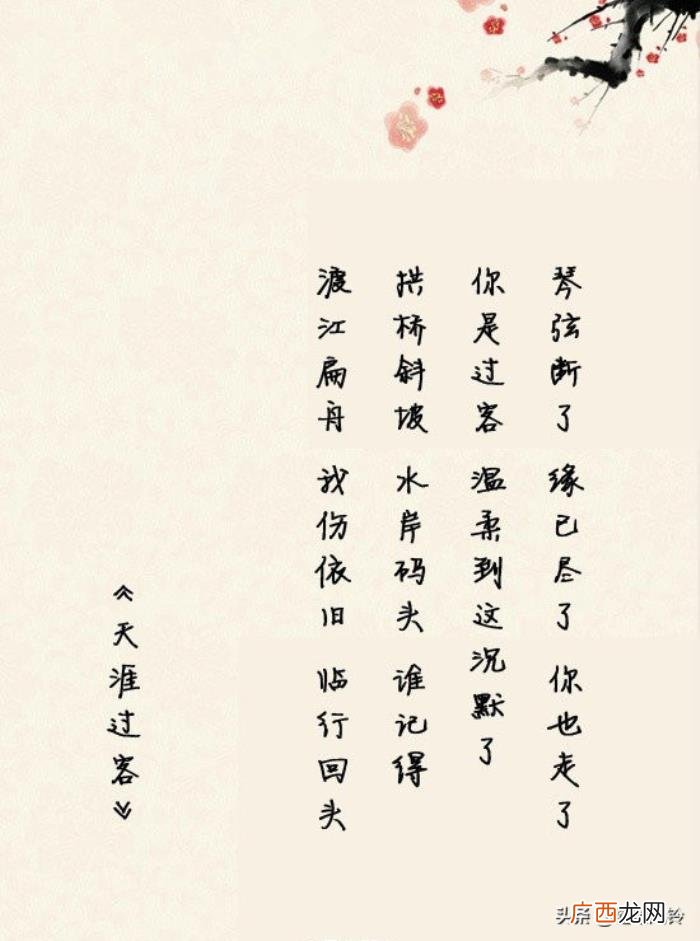 琴弦断了 缘已尽了 你也走了
你是过客 温柔到这沉默了
拱桥斜坡 水岸码头 谁记得
渡江扁舟 我伤依旧 临行回头
《天涯过客》
头条
广西龙网
铃